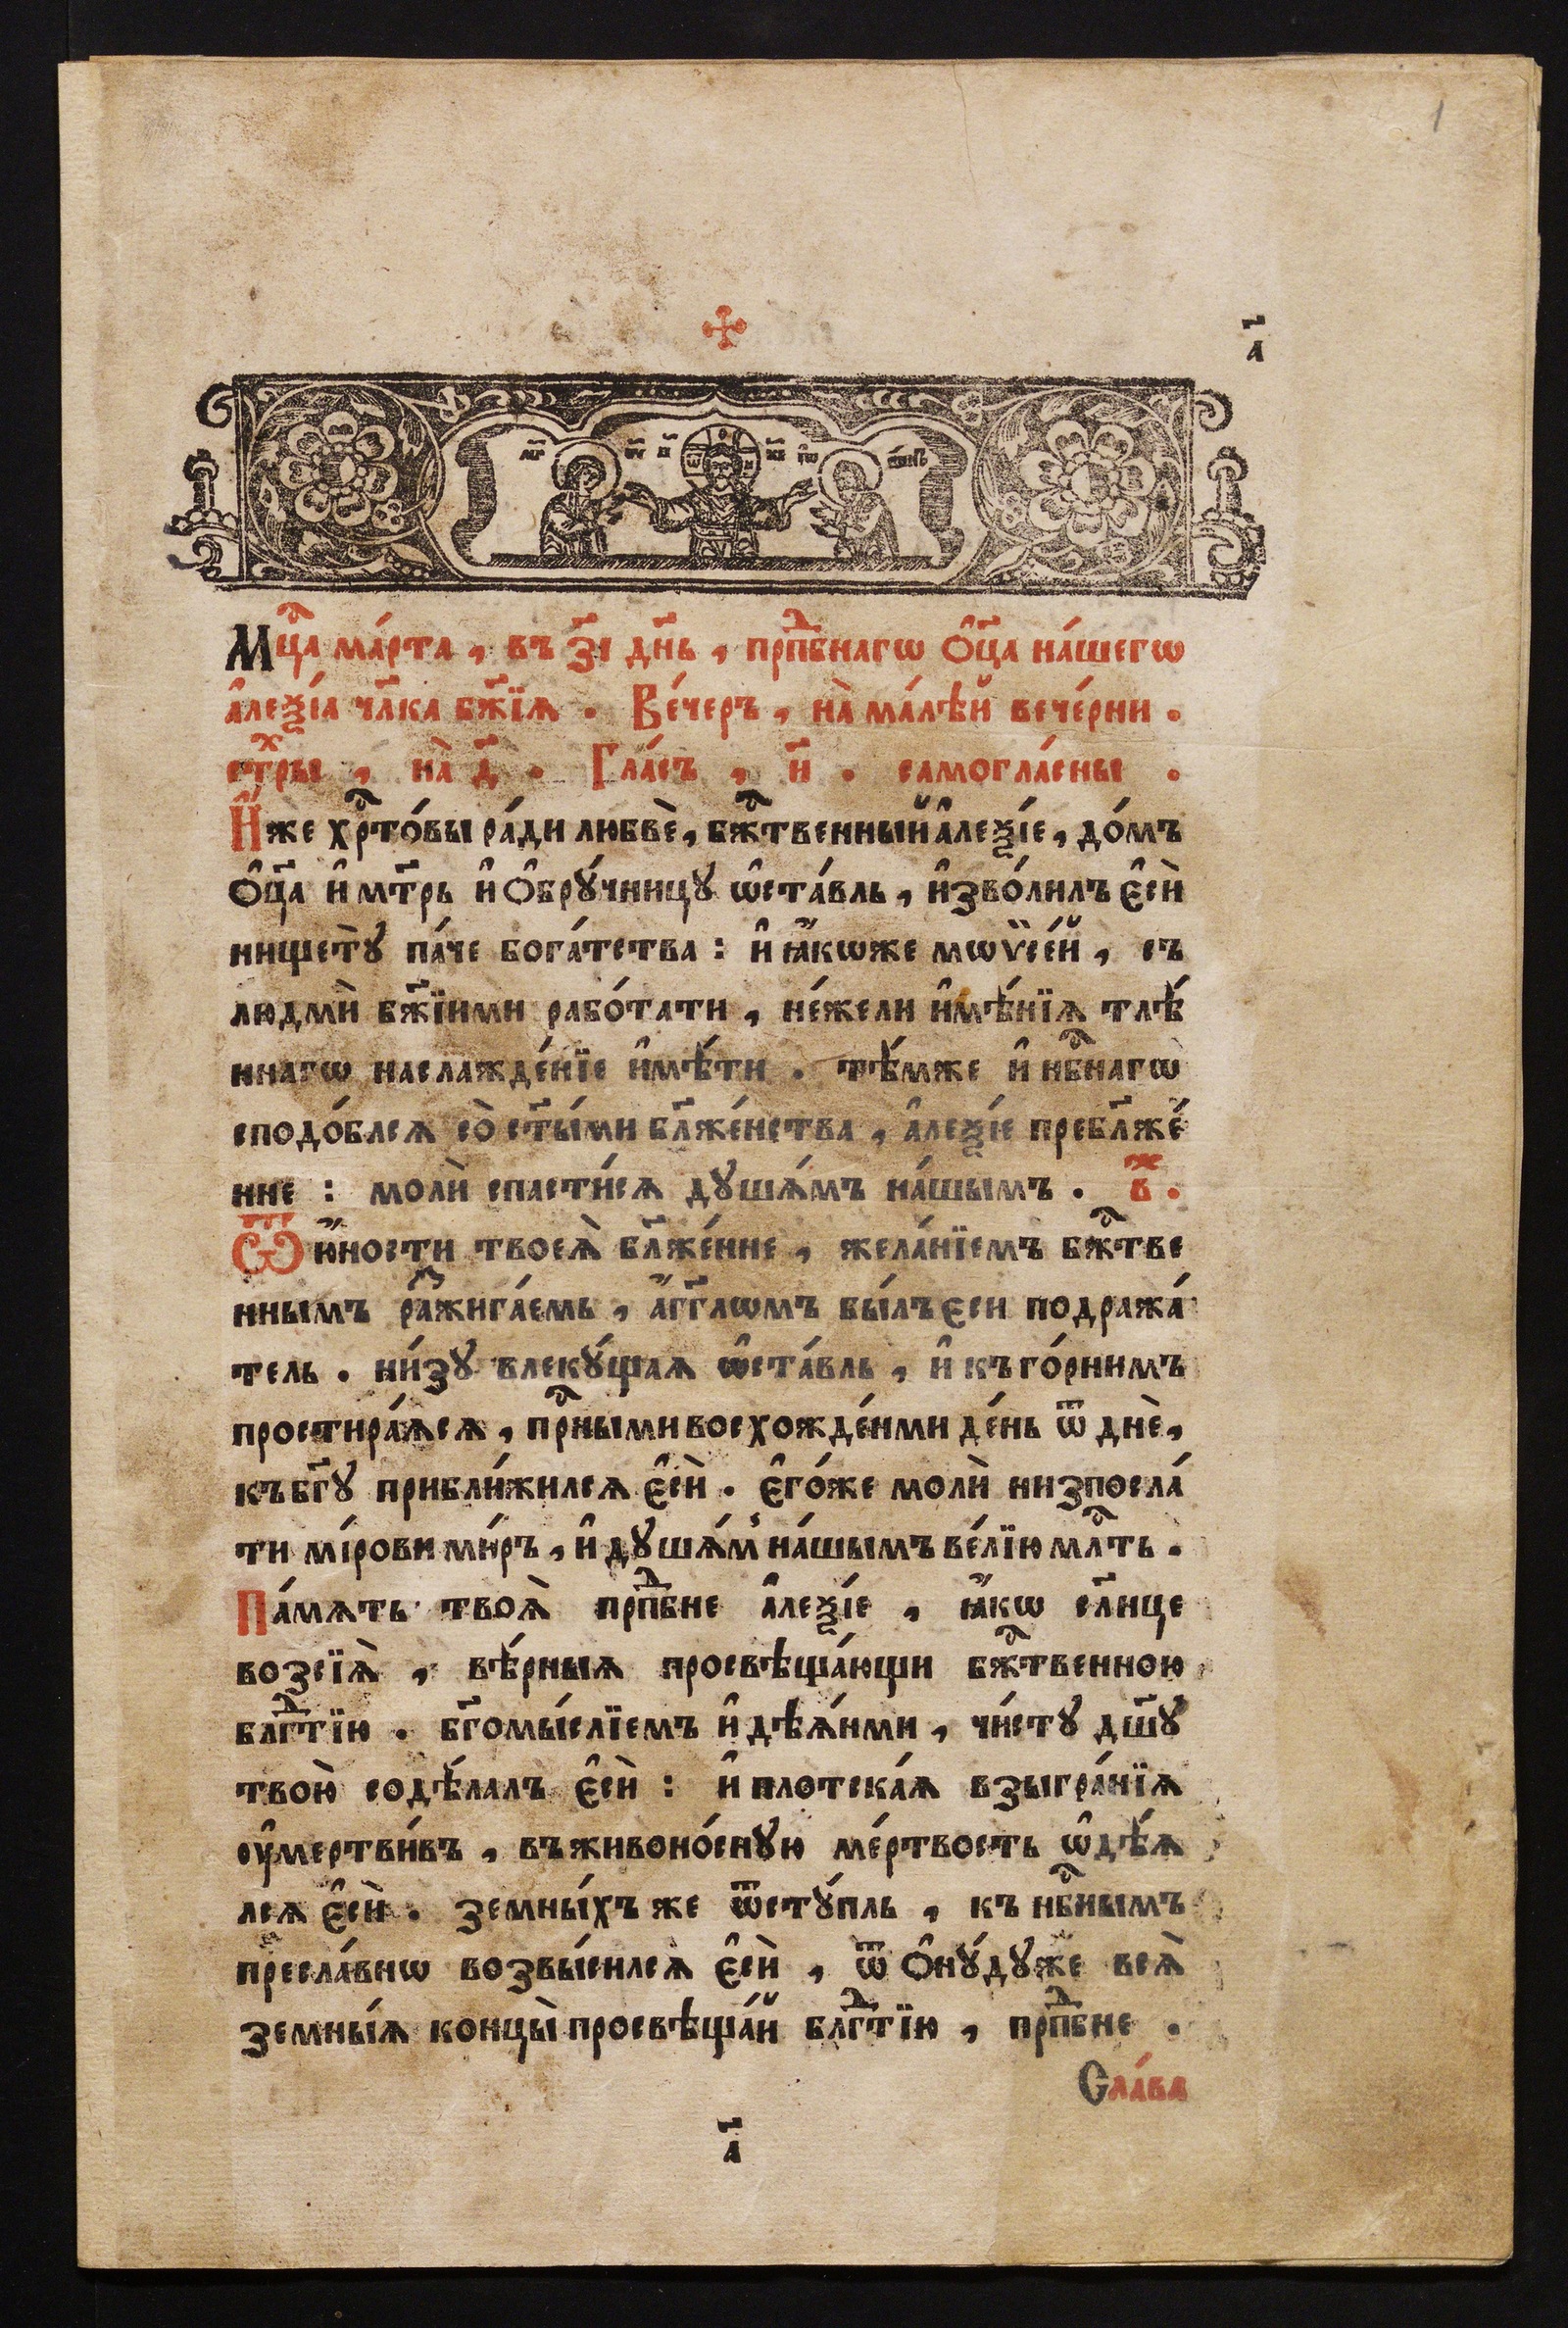 1
а҃
мр҃ ѳу҃ і҃с х҃с іѡ҃
Мцⷭ҇а ма́рта , въ з҃і дн҃ь , прпⷣбнагѡ ѻ҆ц҃а на́шегѡ
а҆леѯі́а чл҃ка бж҃їѧ . Ве́черъ , на̀ ма́лѣй вече́рни .
стⷯры , на̀ д҃ . Гла́съ , и҃ . самогла́сны .
И҆́же хрⷭ҇то́вы ра́ди любвѐ , бжⷭ҇твенный а҆леѯі́е , до́мъ
ѻ҆ц҃а и҆ мт҃рь и҆ ѻ҆брꙋ́чницꙋ ѡ҆ста́вль , и҆зво́лилъ є҆сѝ
нищетꙋ̀ па́че бога́тства : и҆ ꙗ҆́коже мѡѷсе́й , съ
людмѝ бж҃їими рабо́тати , не́жели и҆мѣ́нїѧ тлѣ́
ннагѡ наслажде́нїе и҆мѣ́ти . тѣ́мже и҆ нбⷭ҇нагѡ
сподо́блсѧ со̀ ст҃ы́ми бл҃же́нства , а҆леѯі́е пребл҃же́
нне : молѝ спасти́сѧ дꙋша́мъ на́шымъ . вⷤ .
Ѿ ю҆́ности твоеѧ̀ бл҃же́нне , жела́нїемъ бжⷭ҇тве
ннымъ ражига́емь , а҆́гг҃лѡмъ бы́лъ еси подража́
тель . ни́зꙋ влекꙋ́щаѧ ѡ҆ста́вль , и҆ къ го́рнимъ
простира́ѧсѧ , прⷭ҇ными восхожде́ими де́нь ѿ днѐ ,
къ бг҃ꙋ прибли́жилсѧ є҆сѝ . є҆го́же молѝ низпосла́
ти мі́рови ми́ръ , и҆ дꙋша́м на́шымъ ве́лїю млⷭ҇ть .
Па́мѧть твоѧ̀ прпⷣбне а҆леѯі́е , ꙗ҆́кѡ сл҃нце
возсїѧ̀ , вѣ́рныѧ просвѣща́ющи бжⷭ҇твенною
блгⷣтїю . бг҃омы́слїемъ и҆ дѣѧ́ими , чи́стꙋ дш҃ꙋ
твою̀ содѣ́лалъ є҆сѝ : и҆ плотска́ѧ взыгра́нїѧ
ѹ҆мертви́въ , въ живоно́снꙋю ме́ртвость ѡ҆дѣ́ѧ
лсѧ є҆сѝ . земны́хъ же ѿстꙋ́пль , къ нбⷭ҇нымъ
пресла́внѡ возвы́силсѧ є҆сѝ , ѿ ѻ҆нꙋ́дꙋже всѧ̀
земны́ѧ концы̀ просвѣща́й блгⷣтїю , прпⷣбне .
Сла́ва
а҃